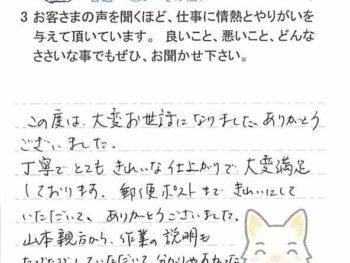 3 お客さまの声を聞くほど、仕事に情熱とやりがいを
与えて頂いています。 良いこと、悪いこと、どんな
ささいな事でもぜひ、お聞かせ下さい。
この度は、大変お世話になりました。ありがとう
ございました。
丁寧でとてもきれいな仕上がりで大変満足
しております。郵便ポストまできれいにして
いただいて、ありがとうございました。
山本親方から、作業の説明も
していただいて 分かりやすかった